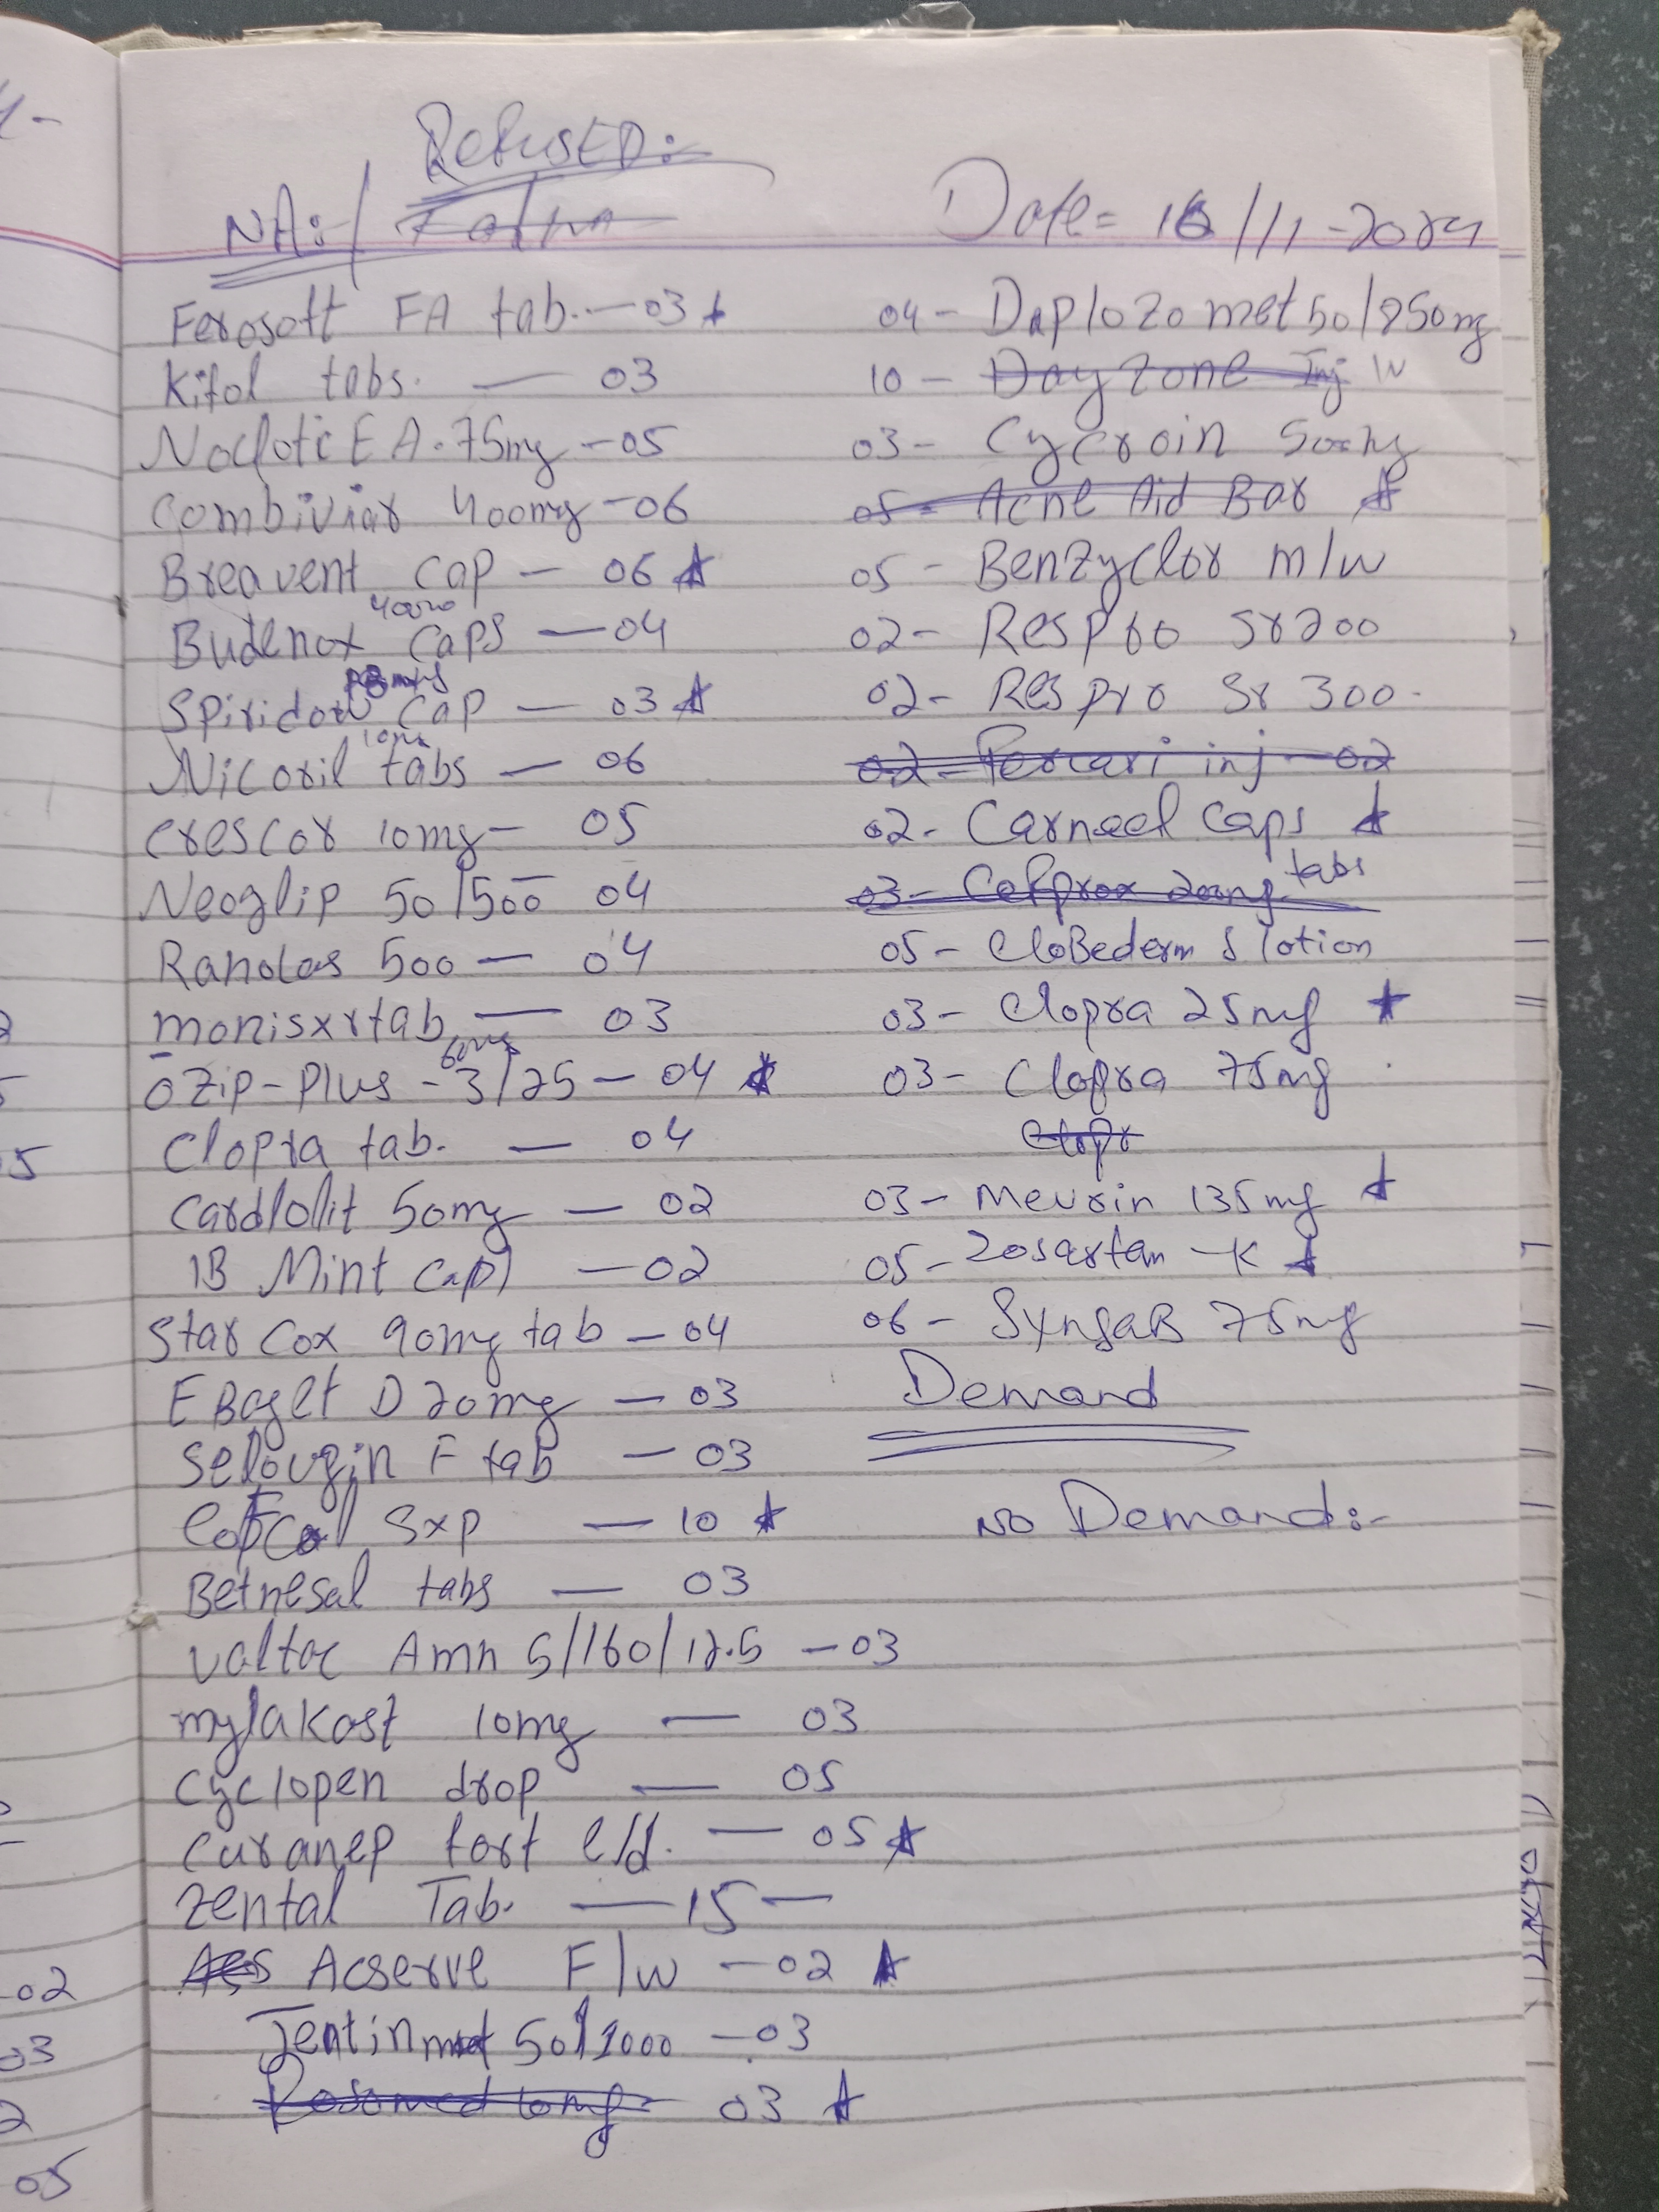 RefusED:
NA:/
Date= 16/11-2024
Ferosoft FA tab.—03
Kifol tabs. — 03
Noclotic EA.75mg -05
Combiviar 400mg -06
Breavent cap — 06
400
Budenox caps —04
Spiridow cap — 03
10mg
Nicoril tabs — 06
crescor 10mg— 05
Neoglip 50/500 04
Ranolas 500 — 04
monisxrtab — 03
60mg
OZip-Plus -3/25 — 04
Clopra tab. — 04
Cardlolit 50mg — 02
IB Mint cap) —02
Star Cox 90mg tab — 04
E Baget D 20mg — 03
Selougin F tab — 03
Cofcol Sxp — 10
Betnesal tabs — 03
valtac Amn 5/160/12.5 —03
mylakast 10mg — 03
Cyclopen drop — 05
Curanep fort e/d. — 05
Zental Tab. —15—
Acserve F/w —02
Jentin met 50/1000 —03
Rosomed 10mg 03
04- Daplozo met 50/850mg
10 — Dayzone Inj IV
03- Cycroin 500mg
05- Acne Aid Bar
05- Benzyclor m/w
02- Respro Sr200
02- Respro Sr 300
02- Percari inj -02
02- Carneel Caps
03- Cefprox 200mg tabs
05- CloBederm S lotion
03- Clopra 25mg
03- Clopra 75mg
Clopr
03- Mevrin 135mg
05- Zosartan -K
06- SyngaB 75mg
Demand
NO Demand:-
02
5
05
-02
03
2
05